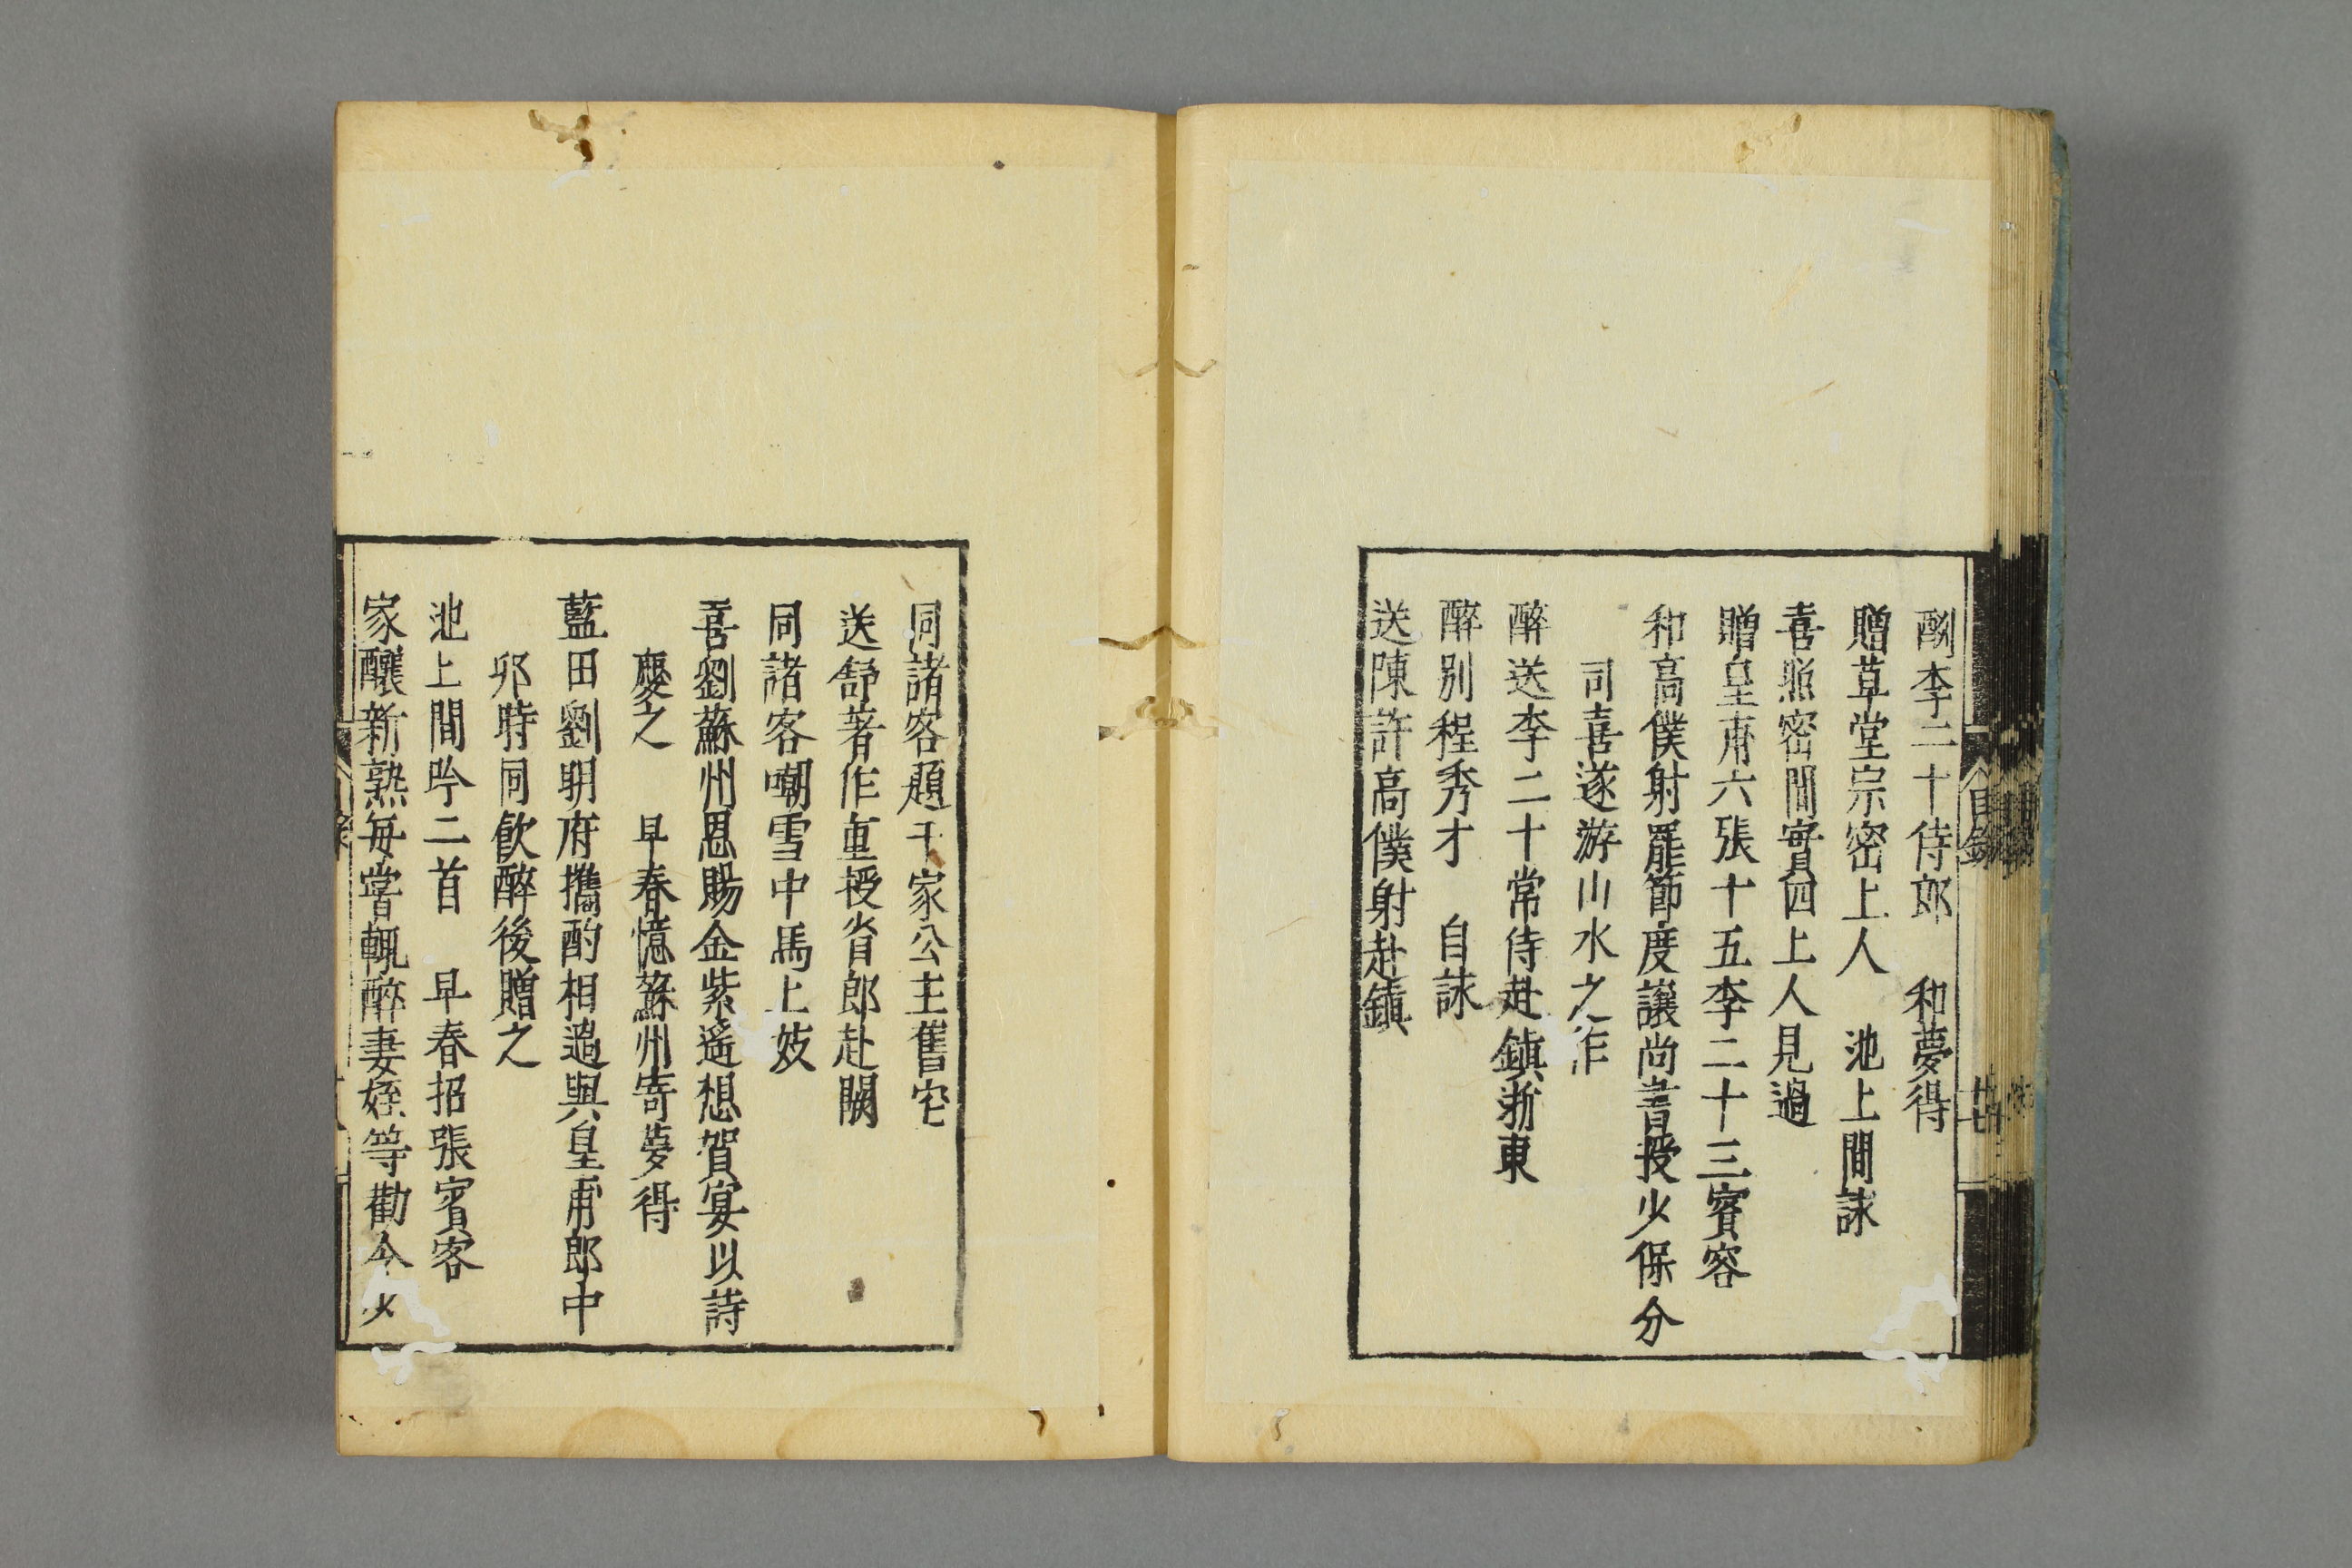 酬李二十侍郎　和夢得
贈草堂宗密上人　池上間詠
喜照密閒實四上人見過
贈皇甫六張十五李二十三賓客
和高僕射罷節度讓尚書授少保分
司喜遂游山水之作
醉送李二十常侍赴鎮浙東
醉別程秀才　自詠
送陳許高僕射赴鎮
目錄
十七
同諸客題于家公主舊宅
送舒著作重授省郎赴闕
同諸客嘲雪中馬上妓
喜劉蘇州恩賜金紫遙想賀宴以詩
慶之　早春憶蘇州寄夢得
藍田劉明府攜酌相過與皇甫郎中
卯時同飲醉後贈之
池上間吟二首　早春招張賓客
家釀新熟每嘗輒醉妻姪等勸令少